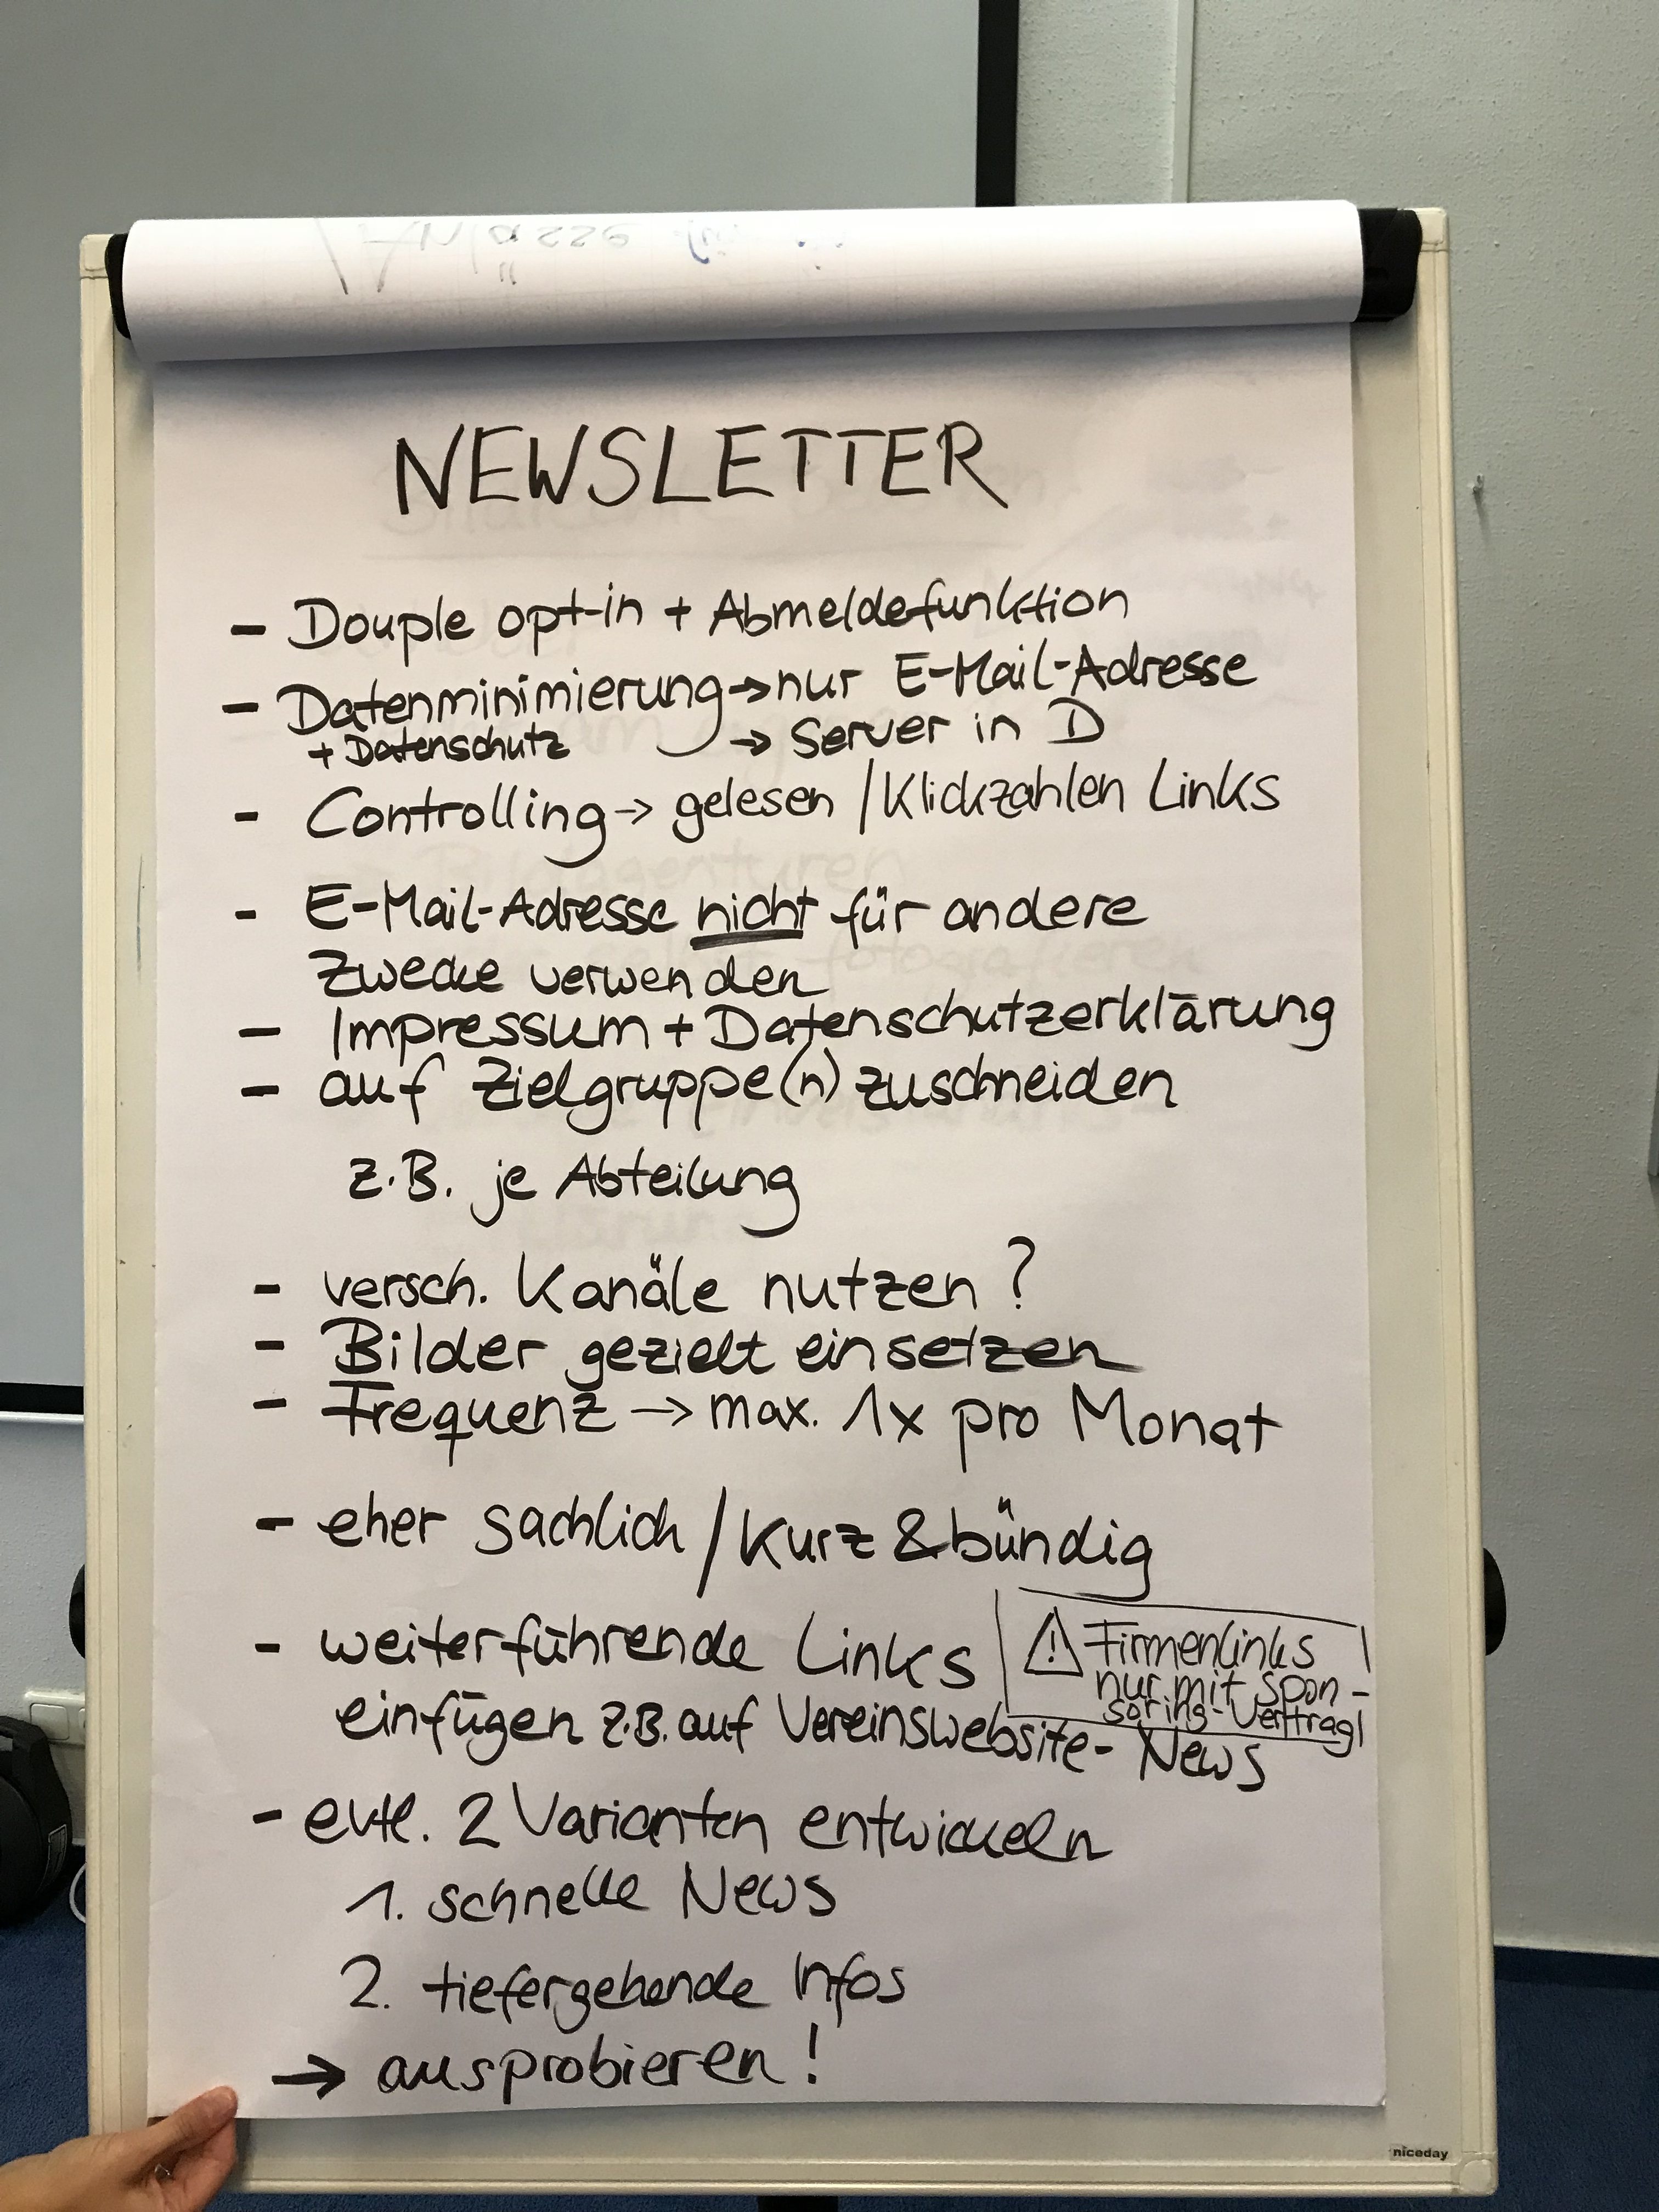 Anlässe für
NEWSLETTER
- Douple opt-in + Abmeldefunktion
- Datenminimierung → nur E-Mail-Adresse
+ Datenschutz → Server in D
- Controlling → gelesen / Klickzahlen Links
- E-Mail-Adresse nicht für andere
Zwecke verwenden
- Impressum + Datenschutzerklärung
- auf Zielgruppe(n) zuschneiden
z.B. je Abteilung
- versch. Kanäle nutzen ?
- Bilder gezielt einsetzen
- Frequenz → max. 1x pro Monat
- eher sachlich / kurz & bündig
- weiterführende Links
einfügen z.B. auf Vereinswebsite - News
⚠ Firmenlinks
nur mit Spon-
soring-Vertrag
- evtl. 2 Varianten entwickeln
1. schnelle News
2. tiefergehende Infos
→ ausprobieren !
niceday